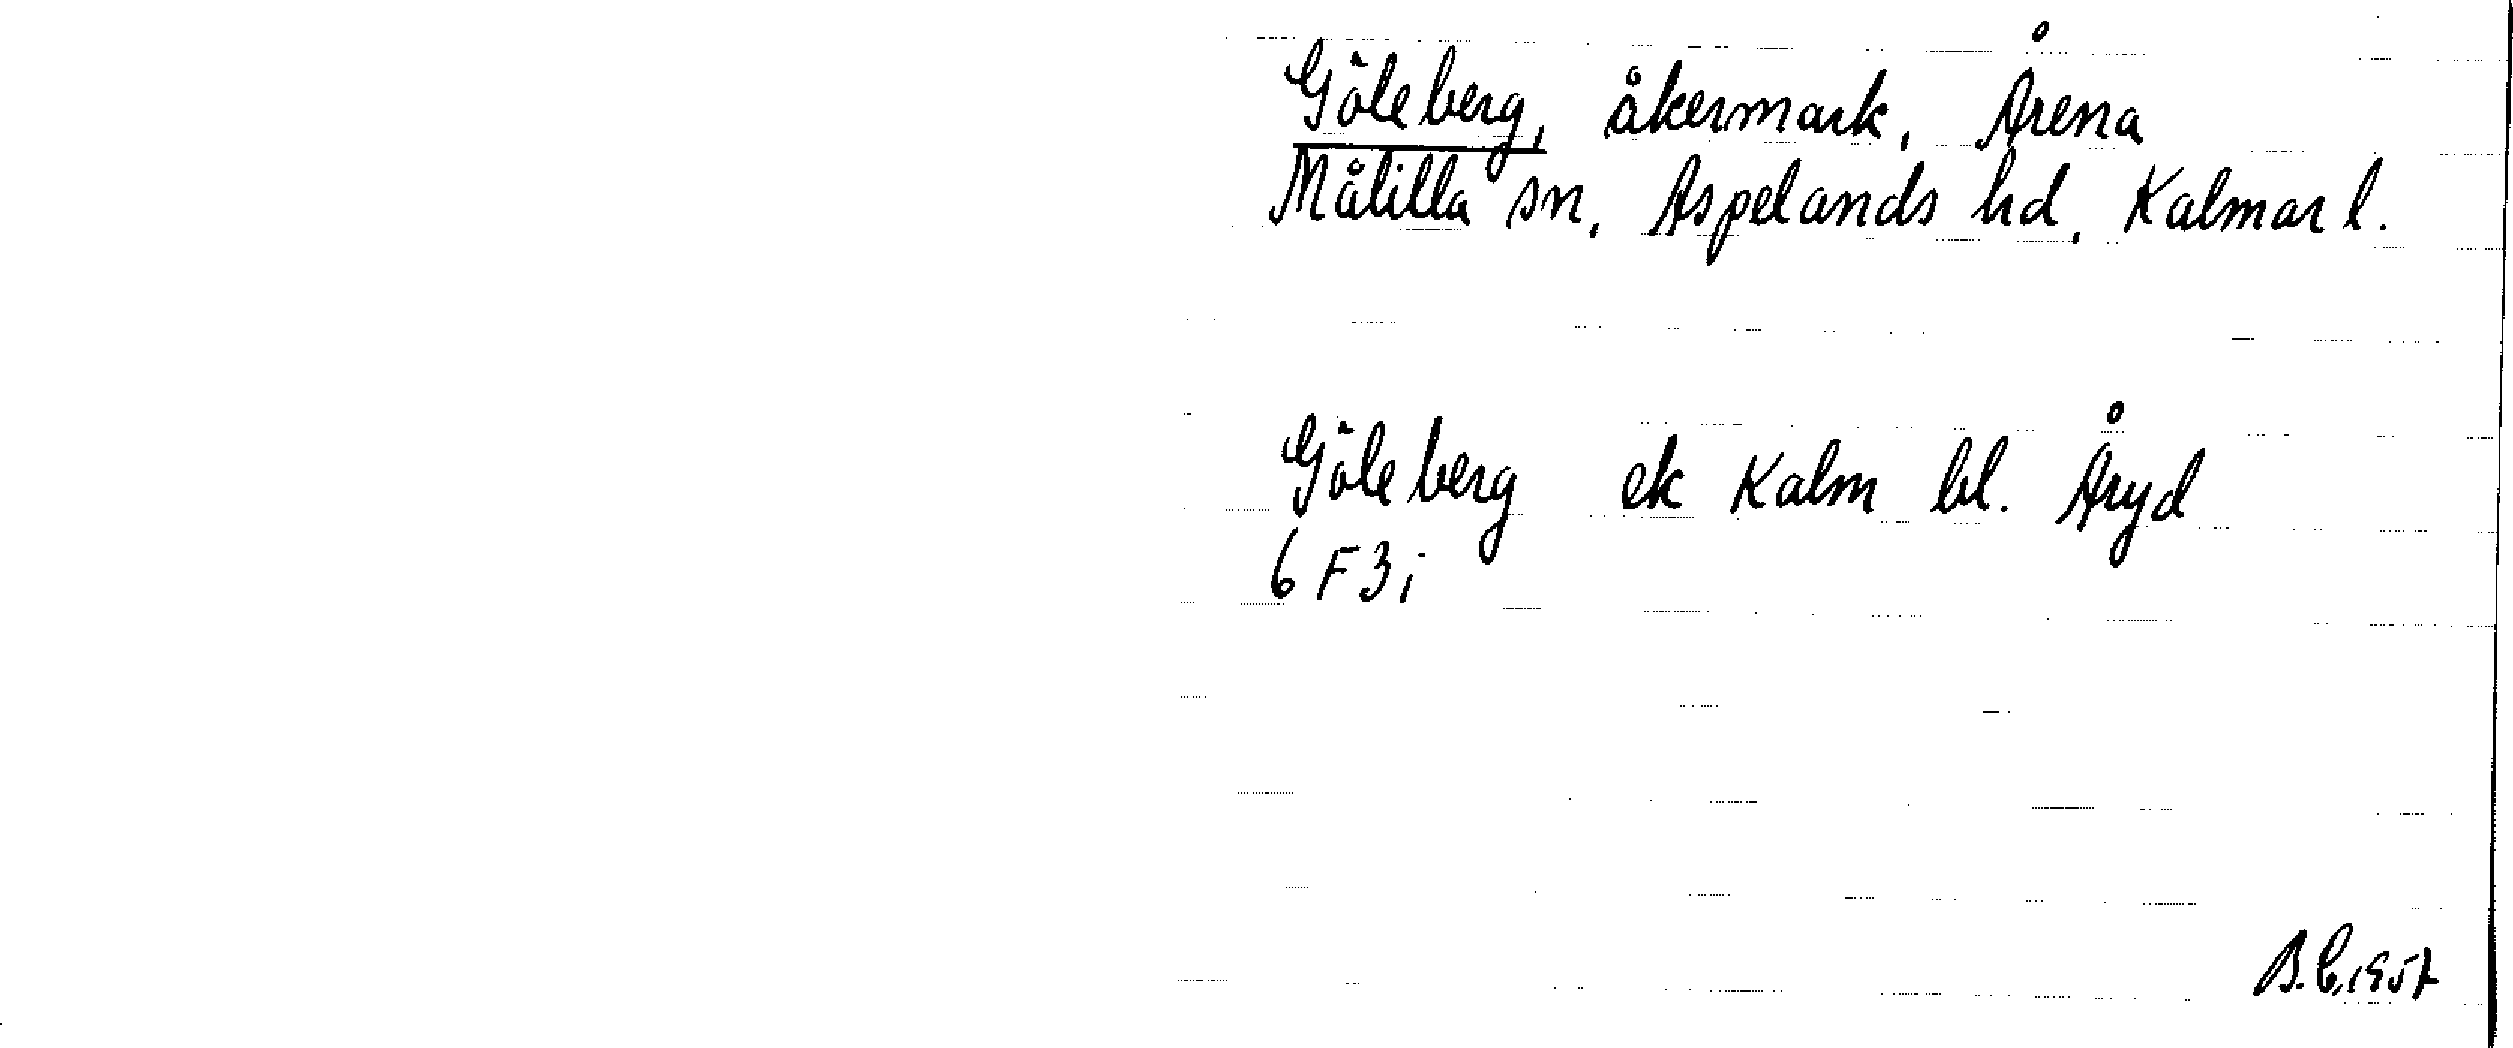 Göleberg, åkermark, Årena
Målilla sn, Aspelands hd, Kalmar l.
Göleberg ek Kalm bl. Åryd
6 F 3 i
B.C. 1957